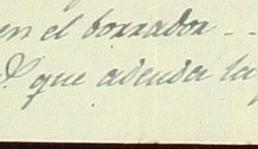 en el borrador - -
que atender la